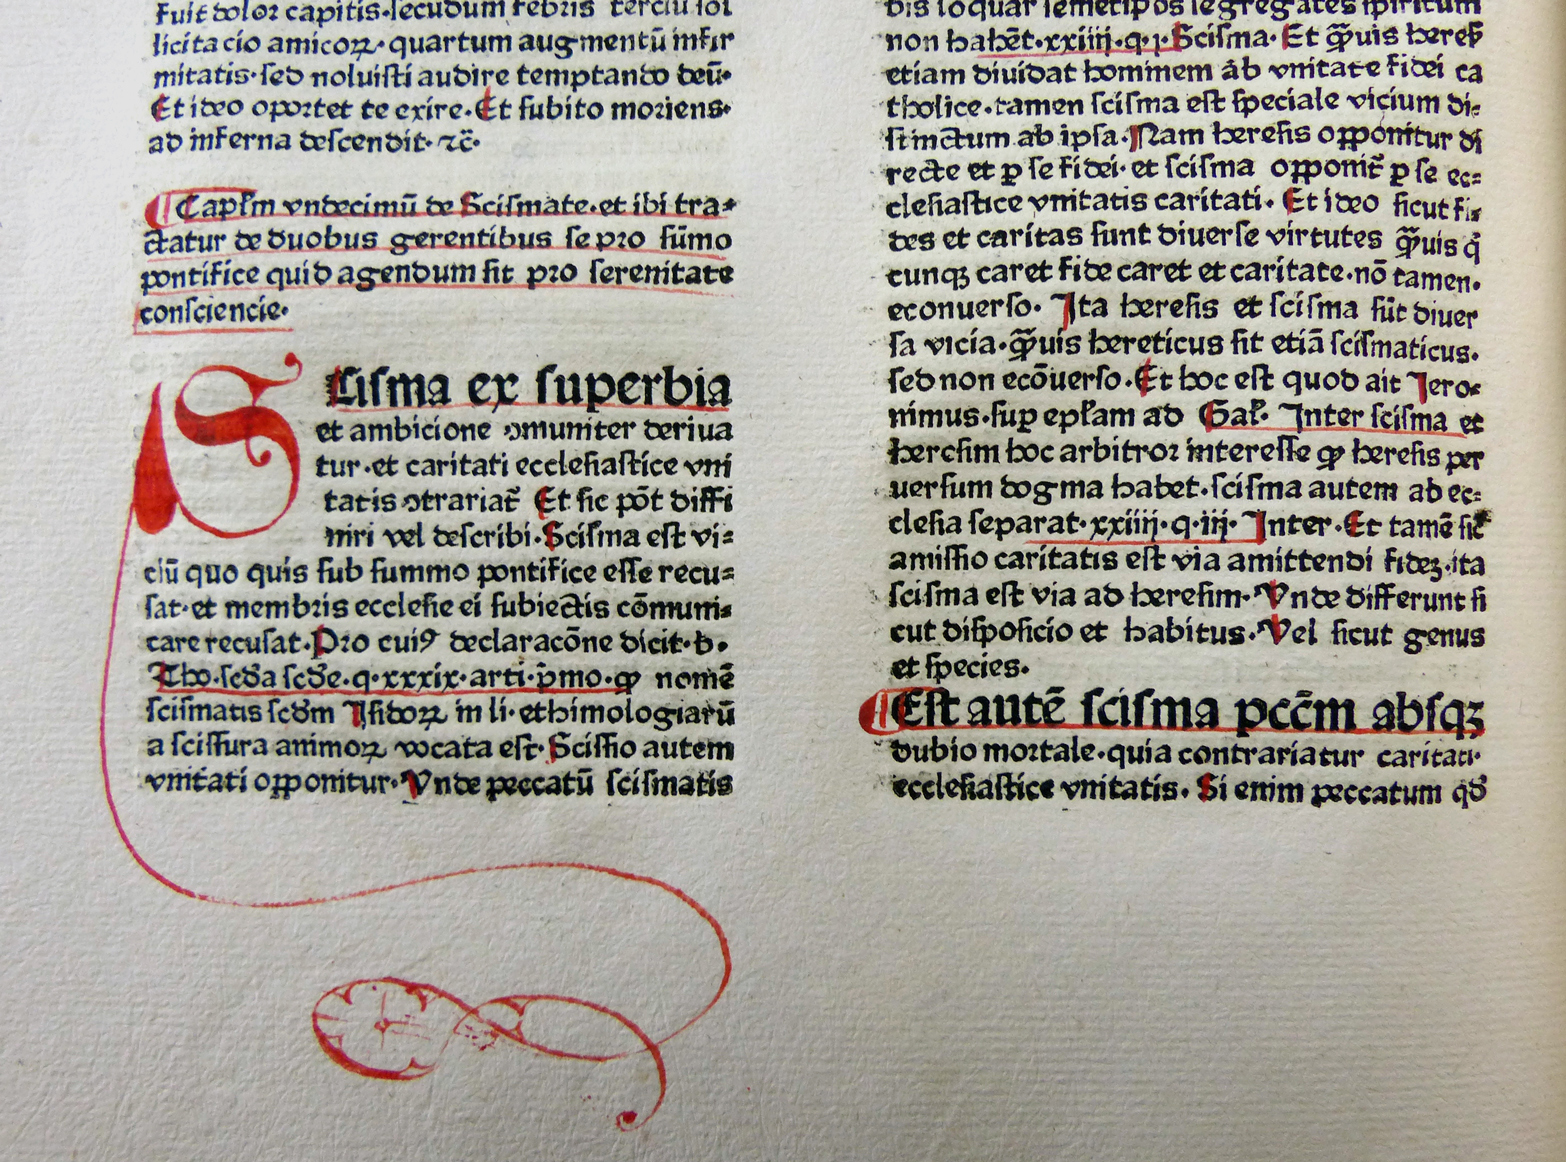 fuit dolor capitis·secūdum febris terciū sol
licitacio amicoꝝ·quartum augmentū infir
mitatis·sed noluisti audire temptando deū·
Et ideo oportet te exire·Et subito moriens·
ad inferna descendit·⁊c̄·
Capłm vndecimū de Scismate·et ibi tra⸗
ctatur de duobus gerentibus se pro sūmo
pontifice quid agendum sit pro serenitate
consciencie·
Scisma ex superbia
et ambicione ꝯmuniter deriua
tur·et caritati ecclesiastice vni
tatis ꝯtrariat᷑ Et sic pōt diffi
niri vel describi·Scisma est vi⸗
ciū quo quis sub summo pontifice esse recu⸗
sat·et membris ecclesie ei subiectis cōmuni⸗
care recusat·Pro cuiꝰ declaracōne dicit·b·
Tho·scd̄a scd̄e·q·xxxix·arti·p̄mo·ꝙ nomē
scismatis scd̄m Isidoꝝ in li·ethimologiarū
a scissura animoꝝ vocata est·Scissio autem
vnitati opponitur·Vnde peccatū scismatis
bis loquar semetipos segregātes spiritum
non habēt·xxiiij·q·j·Scisma·Et q̄uis heres̄
etiam diuidat hominem ab vnitate fidei ca
tholice·tamen scisma est speciale vicium di⸗
stinctum ab ipsa·Nam heresis opponitur di
recte et ꝑ se fidei·et scisma opponit᷑ ꝑ se ec⸗
clesiastice vnitatis caritati·Et ideo sicut fi⸗
des et caritas sunt diuerse virtutes q̄uis q̇
cunqꝫ caret fide caret et caritate·nō tamen·
econuerso·Ita heresis et scisma sūt diuer
sa vicia·q̄uis hereticus sit etiā scismaticus·
sed non ecōuerso·Et hoc est quod ait Jero⸗
nimus·suꝑ epłam ad Gał·Inter scisma et
heresim hoc arbitror interesse ꝙ heresis per
uersum dogma habet·scisma autem ab ec⸗
clesia separat·xxiiij·q·iij·Inter·Et tamē sic̄
amissio caritatis est via amittendi fideꝫ·ita
scisma est via ad heresim·Vnde differunt si
cut disposicio et habitus·Vel sicut genus
et species·
Est autē scisma pcc̄m absqꝫ
dubio mortale·quia contrariatur caritati·
ecclesiastice vnitatis·Si enim peccatum qd̄